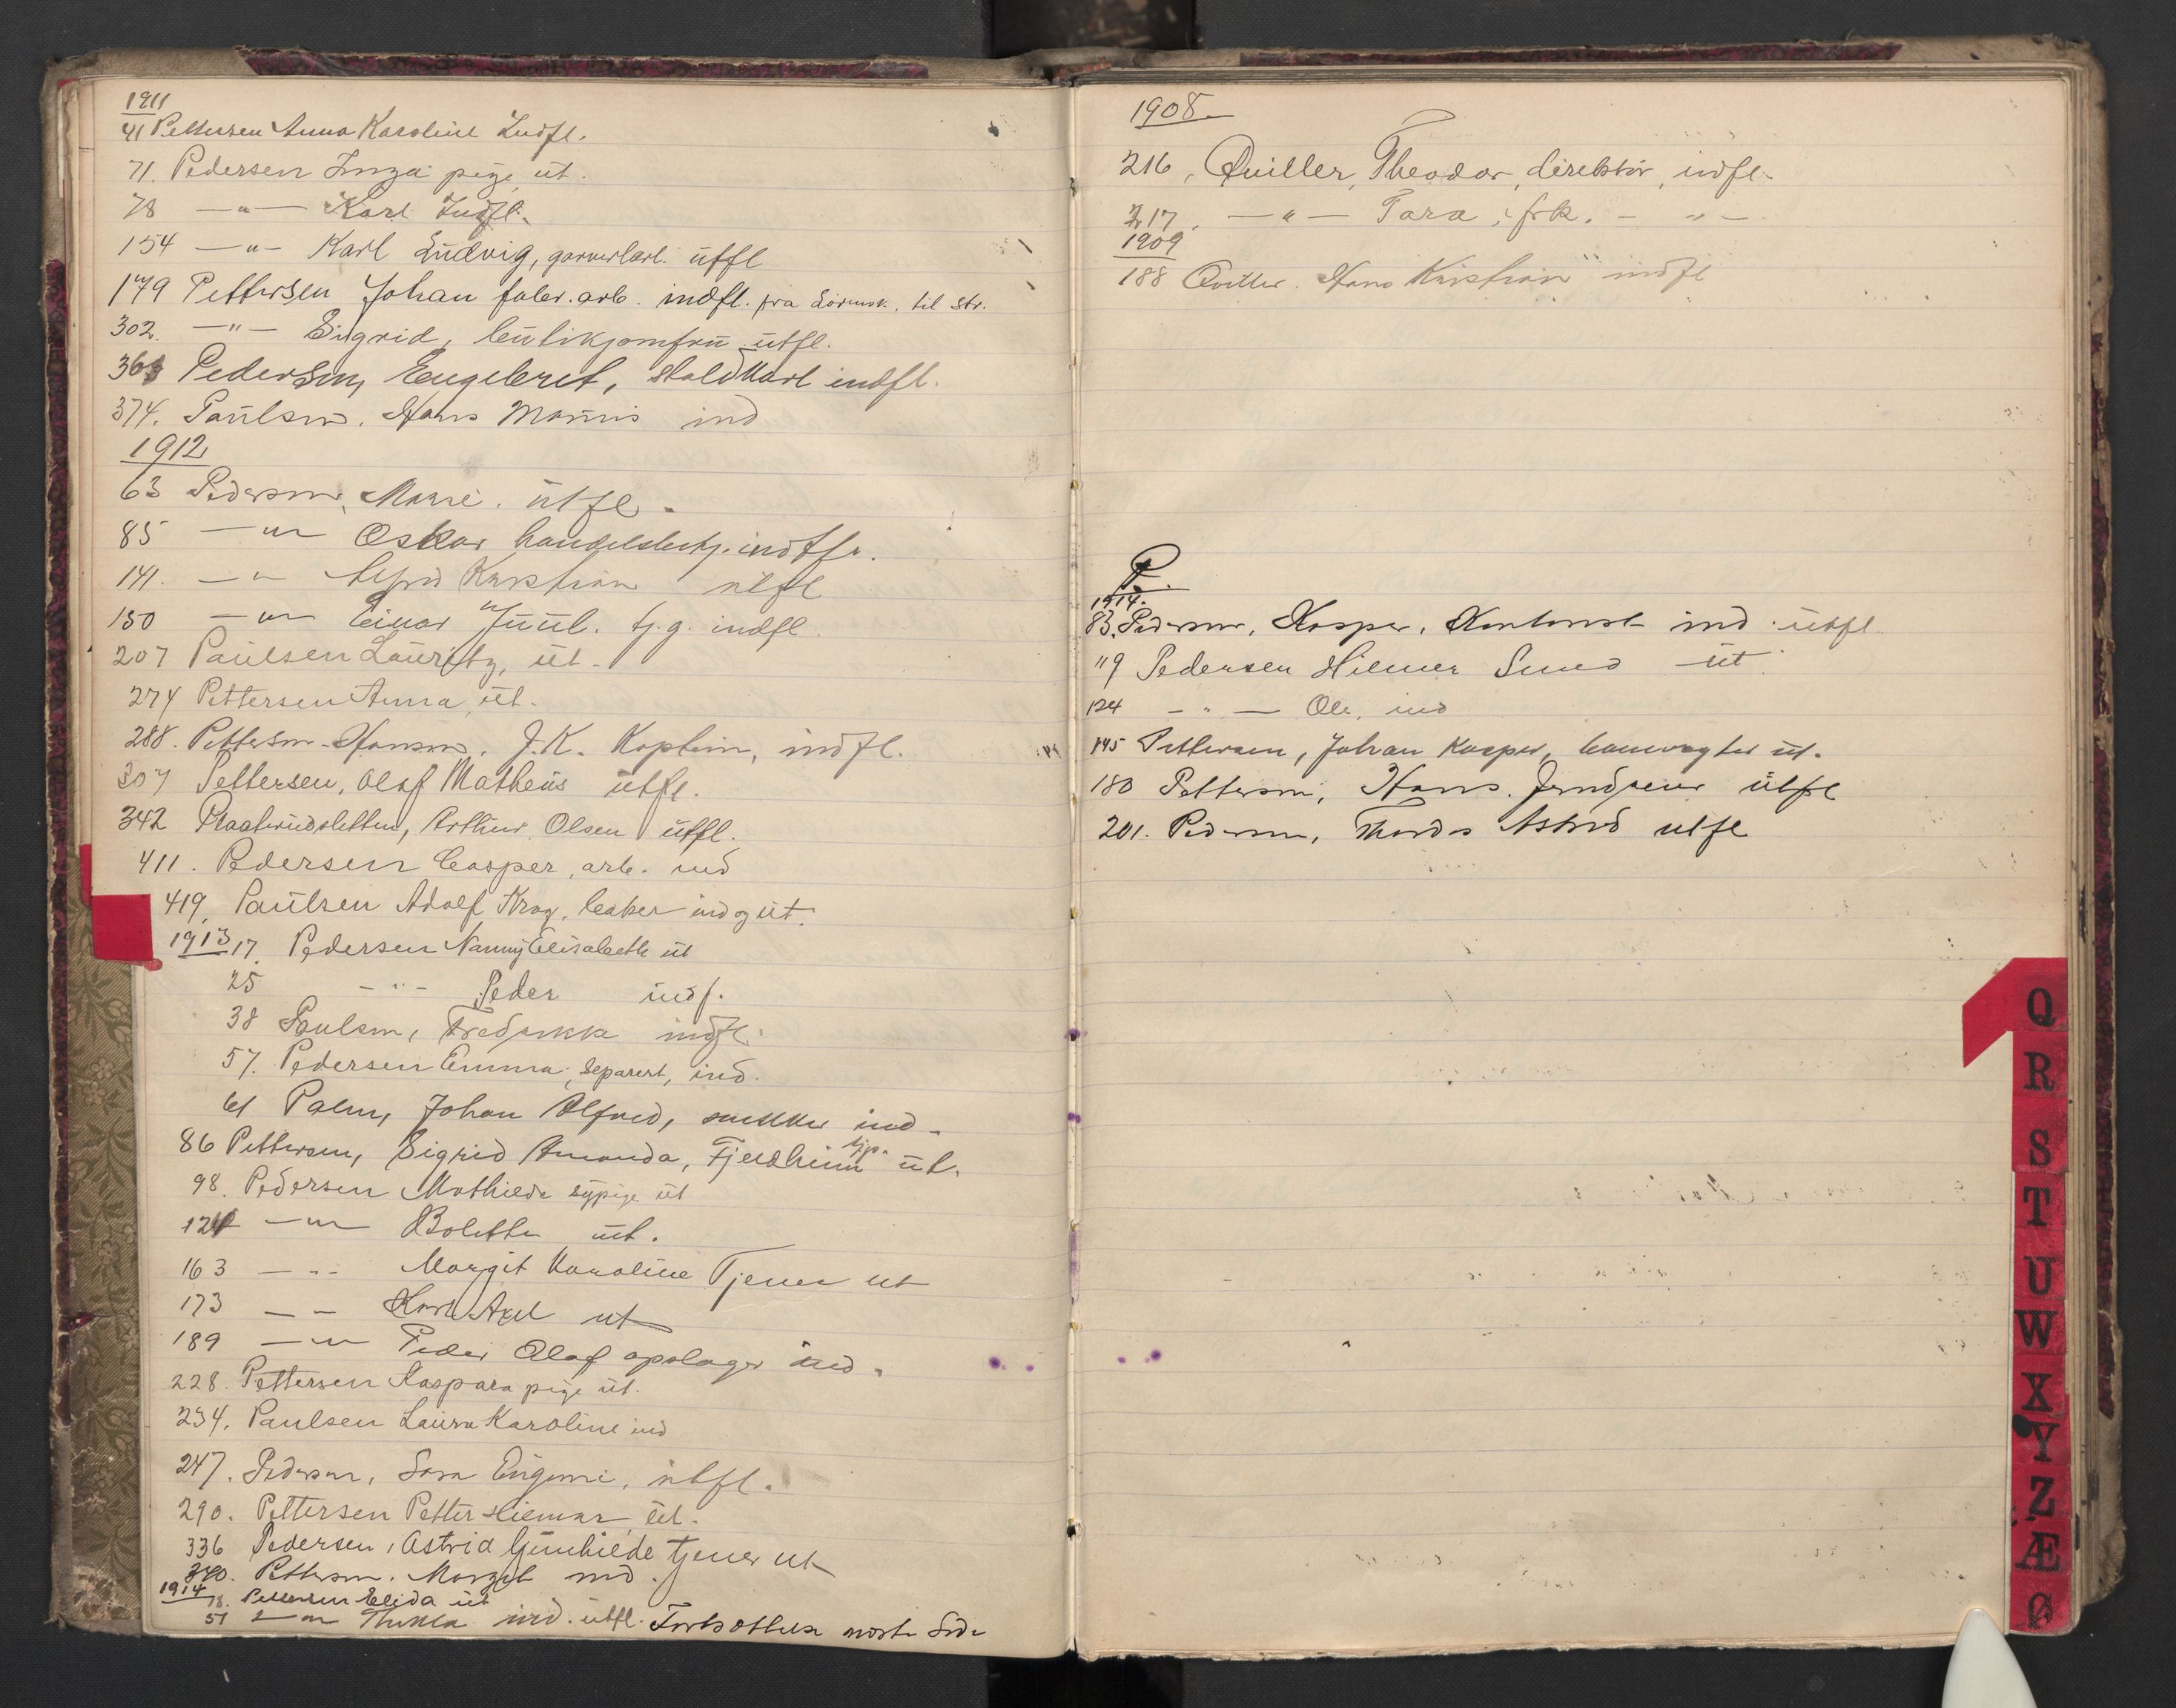 1911
41 Pettersen Anna Karoline Indfl.
71. Pedersen Inga pige ut.
78 —"— Karl Indfl.
154 —"— Karl Ludvig, garverlærl. utfl
179 Pettersen Johan fabr. arb. indfl. fra Lørensk. til Str.
302. —"— Sigrid, butikjomfru utfl.
363 Pedersen, Engebret, staldkarl indfl.
374. Paulsen, Hans Mauris ind
1912
63 Pedersen, Marie. utfl.
85 —"— Oskar handelsbetj. indfl.
141. —"— Alfred Kristian utfl
150 —"— Einar Juul. tj.g. indfl.
207 Paulsen Lauritz, ut.
274 Pettersen Anna ut.
288. Petterson-Hanson, J.K. Kaptein, indfl.
307 Pettersen, Olaf Matheus utfl.
342 Plaaterudsletten, Arthur Olsen utfl.
411. Pedersen Casper, arb. ind
419. Paulsen Adolf Krog, baker ind og ut.
1913 17. Pedersen Nanny Elisabeth ut
25 —"— Peder indf.
38 Paulsen, Fredrikke indfl.
57. Pedersen Emma, separert, ind.
61 Palm, Johan Alfred, snekker ind.
86 Pettersen, Sigrid Amanda, Fjeldheim tjp. ut.
98. Pedersen Mathilde sypige ut
124 —"— Bolette ut.
163 —"— Margit Karoline Tjener ut
173 —"— Karl Axel ut
189 —"— Peder Olaf opslager ind.
228. Pettersen Kaspara pige ut.
234. Paulsen Laura Karoline ind
247. Pedersen, Sara Eugenie, utfl.
290. Pettersen Petter Hilmar, ut.
336 Pedersen, Astrid Gunhilde tjener ut
340. Pettersen, Margit ind.
1914 18. Pettersen Elida ut
51 —"— Thekla ind. utfl. Fortsættelse næste Side
1908.
216, Quiller, Theodor, direktør, indfl.
217. —"— Tora, frk. — " —
1909
188 Quiller. Hans Kristian indfl
P.
1914.
83. Pedersen, Kasper, Kontorist ind. utfl.
119 Pedersen Hilmer Smed ut
124 —"— Ole, ind
145 Pettersen, Johan Kasper, banevogter ut.
180 Pettersen, Hans. utfl
201. Pedersen, Thordis Astrid utfl
Q
R
S
T
U
W
X
Y
Z
Æ
Ø